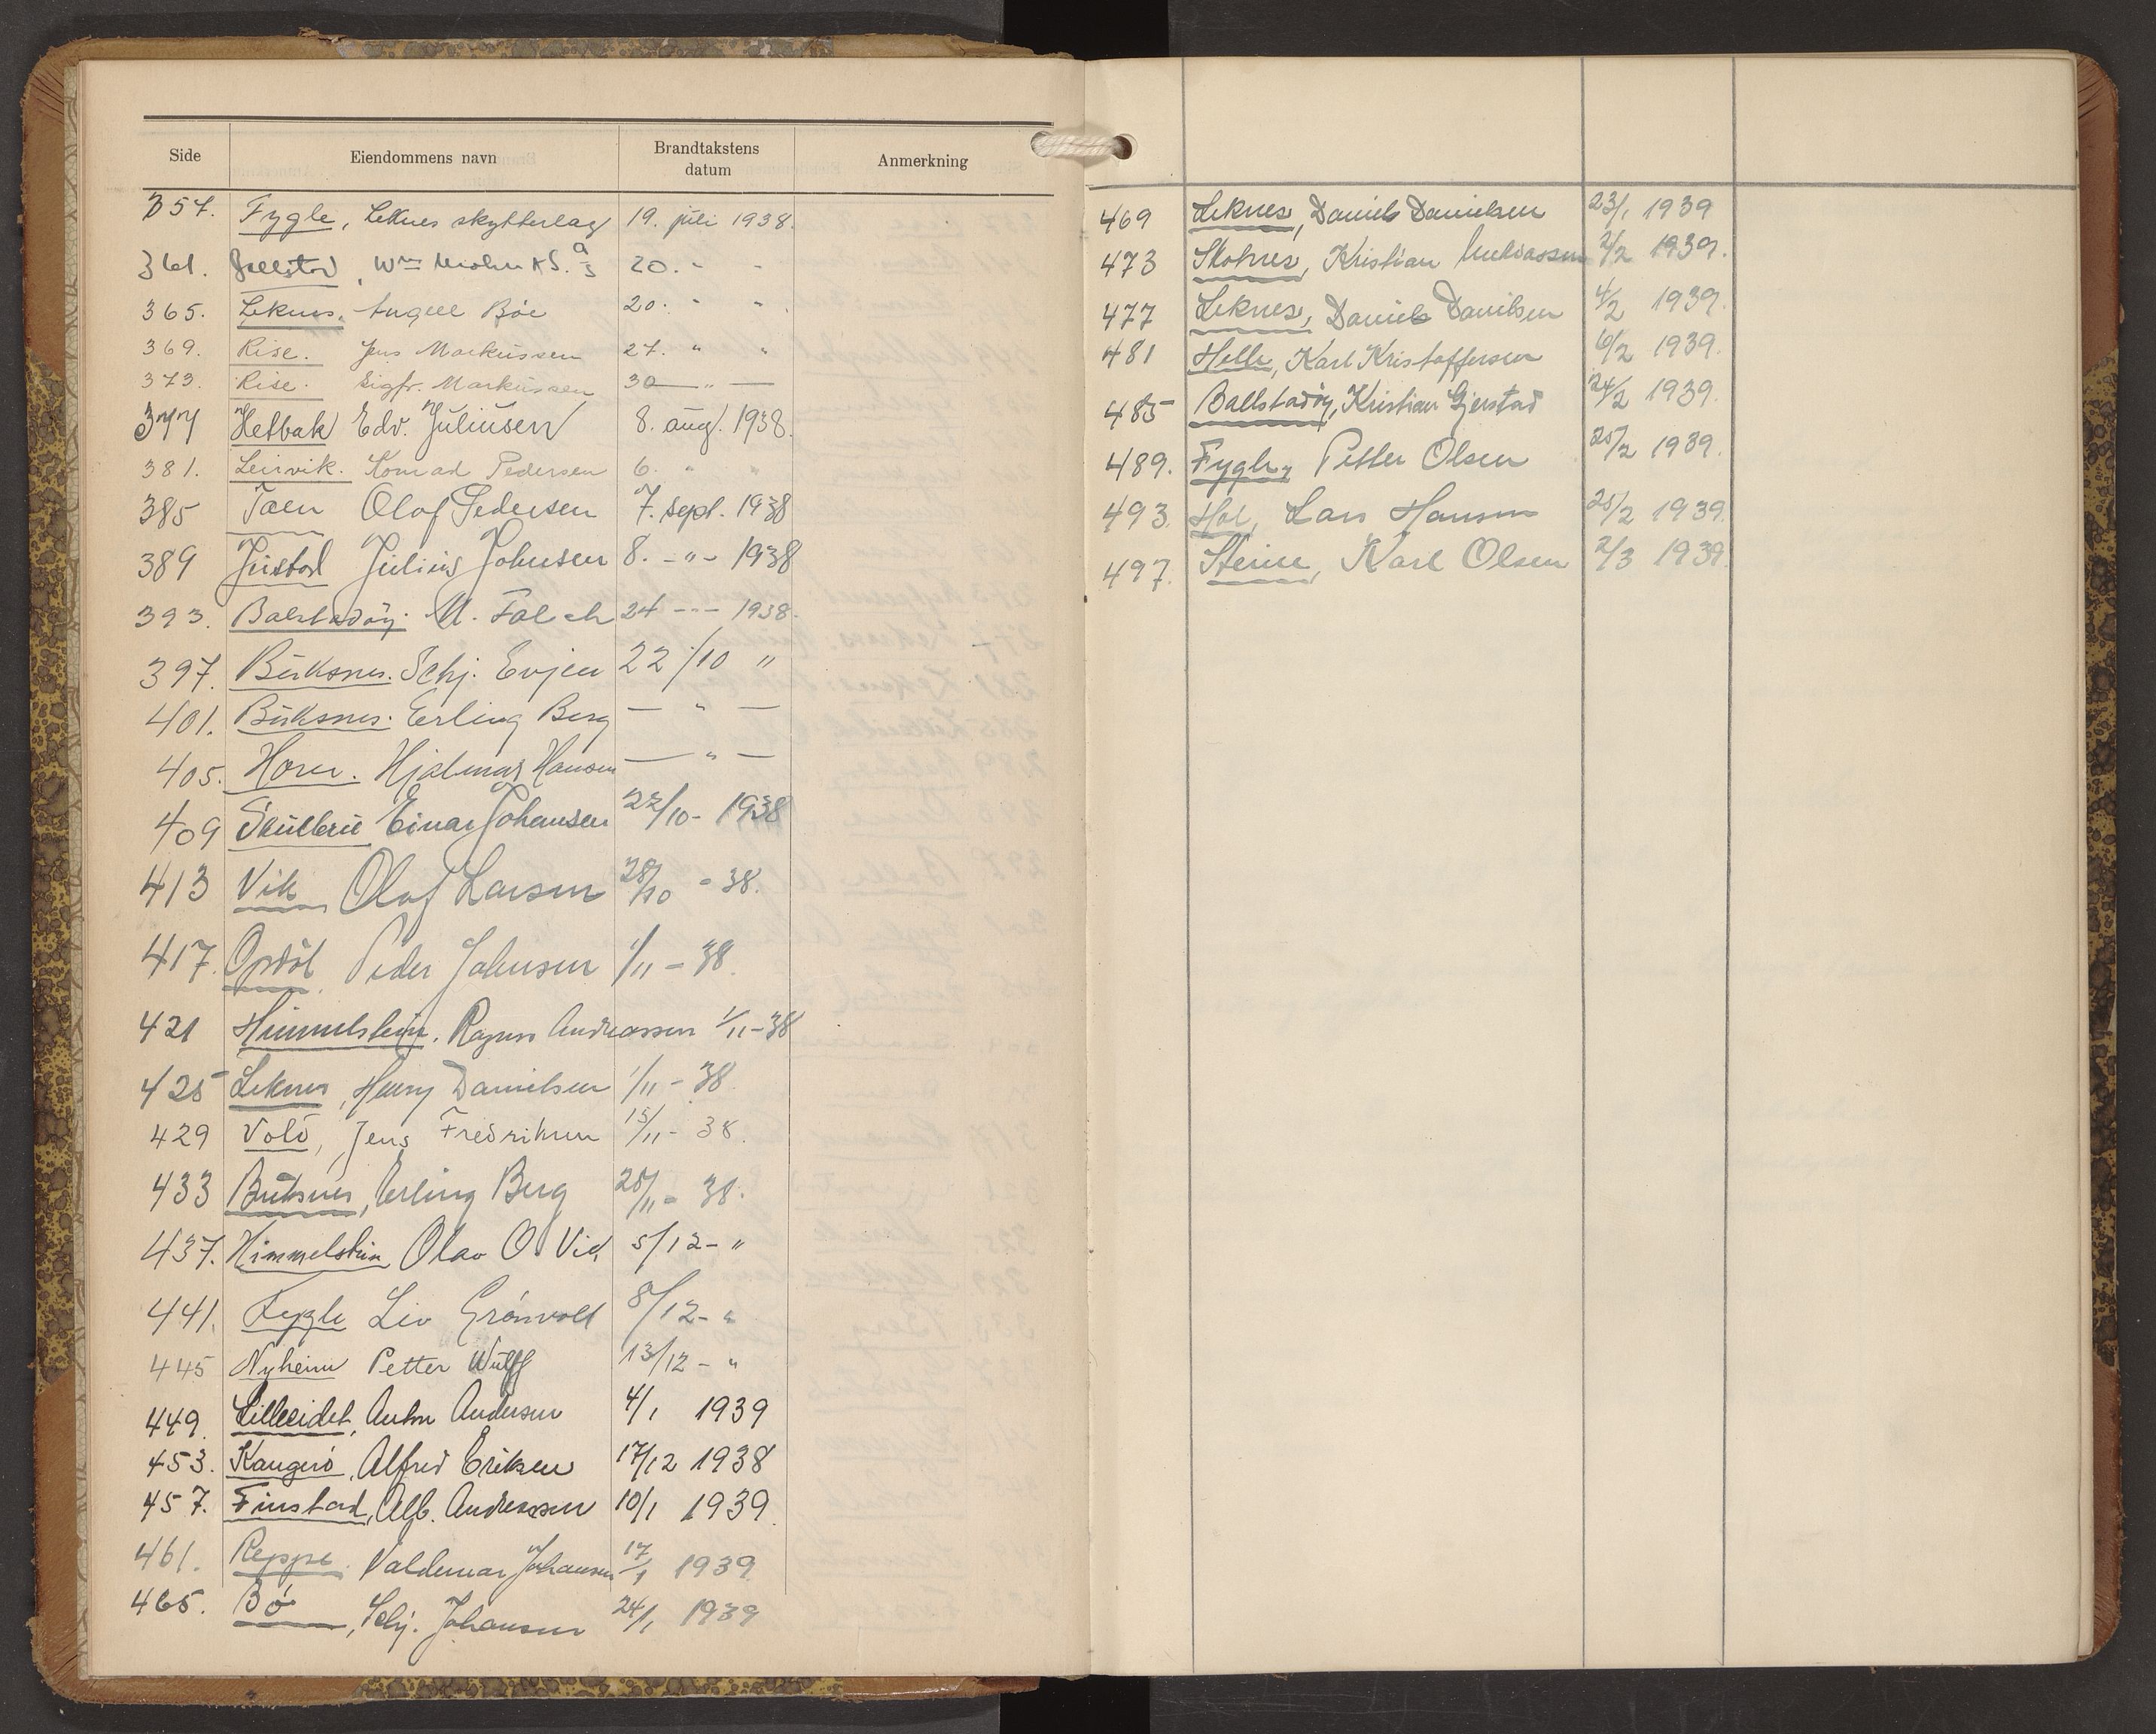 Side Eiendommens navn Brandtakstens datum Anmerkning
357. Fygle, Leknes skytterlag 19. juli 1938.
361. Wm Mohn & S. A/S 20. " "
365. Leknes. Angell Böe 20. " "
369. Rise. Jens Markussen 27. " "
373. Rise. Sigfr. Markussen 30 — " —
377 Hetbak Edv. Juliusen 8. aug. 1938.
381. Leirvik. Konrad Pedersen 6. " "
385 Taen Olaf Pedersen 7. sept. 1938
389 Justad Julius Johnsen 8. - " - 1938
393. Balstadöy. M. Falch 24 --- 1938.
397. Buksnes. Schj. Evjen 22/10 "
401. Buksnes. Erling Berg — " —
405. Horn. Hjalmar Hansen — " —
409 Skullerie Einar Johansen 22/10- 1938
413 Vik Olaf Larsen 28/10 - 38.
417. Opdöl. Peder Johnsen 1/11 - 38.
421 Himmelstein. Ragnar Andreassen 1/11-38
425 Leknes, Henry Danielsen 1/11 - 38.
429 Volö, Jens Fredriksen 15/11- 38.
433 Buksnes, Erling Berg 28/11- 38.
437. Himmelstein Olav O. Vid 5/12- "
441. Fygle Liv Grönvold 8/12- "
445 Nyheim Petter Wulff 13/12 - "
449. Lilleeidet, Anton Andersen 4/1 1939
453. Kangerö, Alfred Eriksen 17/12 1938
457. Finstad, Alb. Andreassen 10/1 1939.
461. Reppe. Valdemar Johansen 17/1 1939.
465. Bö, Schj. Johansen 24/1 1939
469 Leknes, Daniel Danielsen 23/1 1939
473 Skotnes, Kristian 2/2 1939.
477 Leknes, Daniel Danielsen 4/2 1939.
481 Helle, Karl Kristoffersen 6/2 1939.
485 Ballstadöy, Kristian Gjerstad 24/2 1939.
489. Fygle, Petter Olsen 25/2 1939.
493. Hol, Lars Hansen 25/2 1939.
497. Steine, Karl Olsen 2/3 1939.